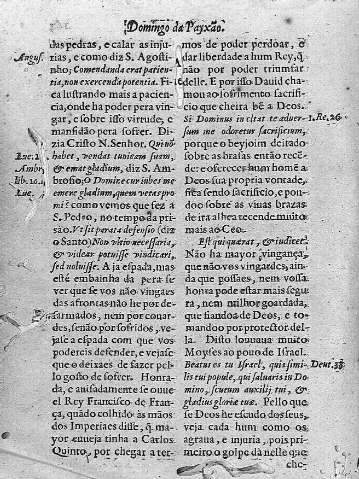 Domingo da Payxão.
das pedras, e calar as inju-
rias, e como diz S. Agosti-
nho; Comendanda erat patien-
tia, non exercenda potentia. Fi-
ca lustrando mais a pacien-
cia, onde ha poder pera vin-
gar, e sobre isso virtude, e
mansidão pera sofrer. Di-
zia Cristo N. Senhor, Qui nõ
habet, vendat tunicam suam,
& emat gladium, diz S. Am-
brosio; O Domine cur iubes me
emere gladium, quem vetas pro-
mi? como vemos que fez a
S. Pedro, no tempo da pri-
são. Ut sit parata defensio (diz
o Santo) Non vltio necessaria,
& videar potuisse vindicari,
sed noluisse. A ja espada, mas
estè embainhada pera se
ver que se vos não vingaes
das afrontas não he por de-
sarmados, nem por couar-
des, senão por sofridos, ve-
jase a espada com que vos
podereis defender, e vejase
que o deixaes de fazer pel-
lo gosto de sofrer. Honra-
da, e ausadamente se ouue
el Rey Francisco de Fran-
ça, quãdo colhido às mãos
dos Imperiaes disse, q̃ ma-
yor enueja tinha a Carlos
Quinto, por chegar a ter-
Angus.
Luc. 22
Ambr.
lib. 10. in
Luc.
mos de poder perdoar, e
dar liberdade a hum Rey, q̃
não por poder triumfar
delle. E por isso Dauid cha-
mou ao sofrimento sacrifi-
cio que cheira bẽ a Deos.
Si Dominus incitat te aduer-
sum me odoretur sacrificium,
porque o beyjoim deitado
sobre as brasas então recẽ-
de: e oferecer hum homẽ a
Deos sua propria vontade,
fica sendo sacrificio, e pou-
doe sobre as viuas brazas
de ira alhea recende muito
mais ao Ceo.
Est qui quærat, & iudicet.
Não ha mayor, vingança,
que não vos vingardes, ain-
da que possaes, nem vossa
honra pode estar mais segu-
ra, nem milhor goardada,
que fiandoa de Deos, e to-
mandoo por protector del-
la. Disto louuaua muito
Moyses ao pouo de Israel.
Beatus es tu Israel, quis simi-
lis tui popule, qui saluaris in Do-
mino, scutum auxilij tui, &
gladius gloriæ tuæ. Pello que
se Deos he escudo dos seus,
veja cada hum como os
agraua, e injuria, pois pri-
meiro o golpe dà nelle que
che-
1. Re. 26.
Deut. 33.